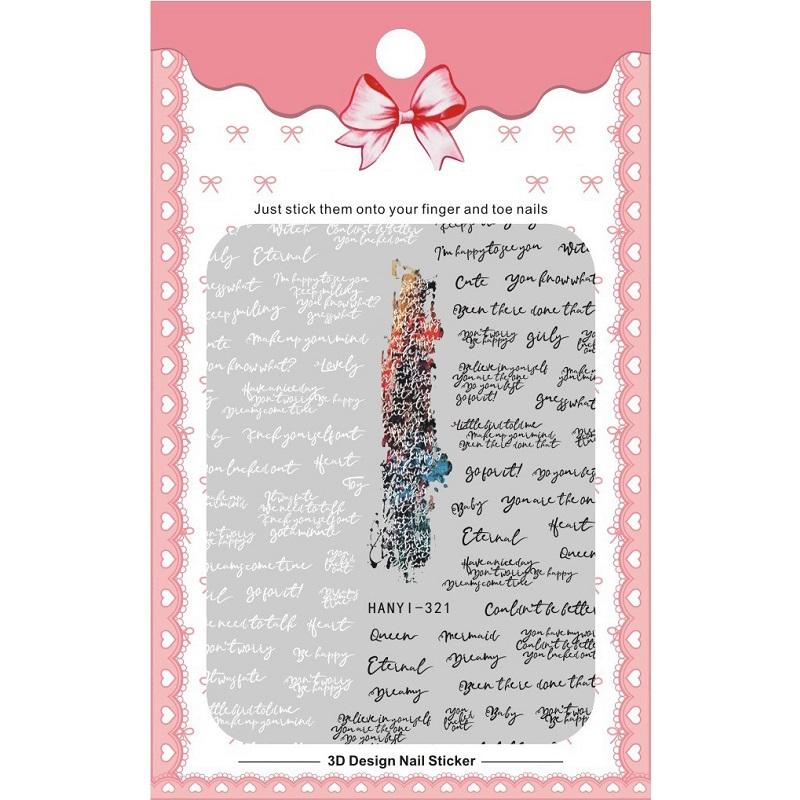 Just stick them onto your finger and toe nails
Witch Couldn't be better
You lucked out
Eternal
I'm happy to see you
Keep smiling
You know what?
guess what
keep smiling
Make up your mind
you know what? Lovely
Have a nice day
Don't worry Be happy
Dreams come true
Fuck yourself out
you lucked out Heart
Toy
It was fate
We need to talk
Fuck yourself out
got a minute
Dreams come true
go for it!
We need to talk Heart
Don't worry Be happy
It was fate Don't worry
Be happy
Little bird told me
Make up your mind
I'm happy to see you
Cute You know what
Been there done that
Don't worry
Be happy
girly
Believe in yourself
You are the one
Do your best
go for it!
guess what
Little bird told me
Make up your mind
Been there done that
go for it! Do your best
Baby You are the on
Eternal Heart
Queen
Have a nice day
Don't worry Be happy
Dreams come true
HANYI-321 Couldn't be better
Queen Mermaid You have my wor
Couldn't be bette
You lucked out
Eternal Dreamy
Dreamy Been there done that
Believe in yourself
You are the one
Do your best
You
lucked
out
Baby Don't wor
Be happ
3D Design Nail Sticker